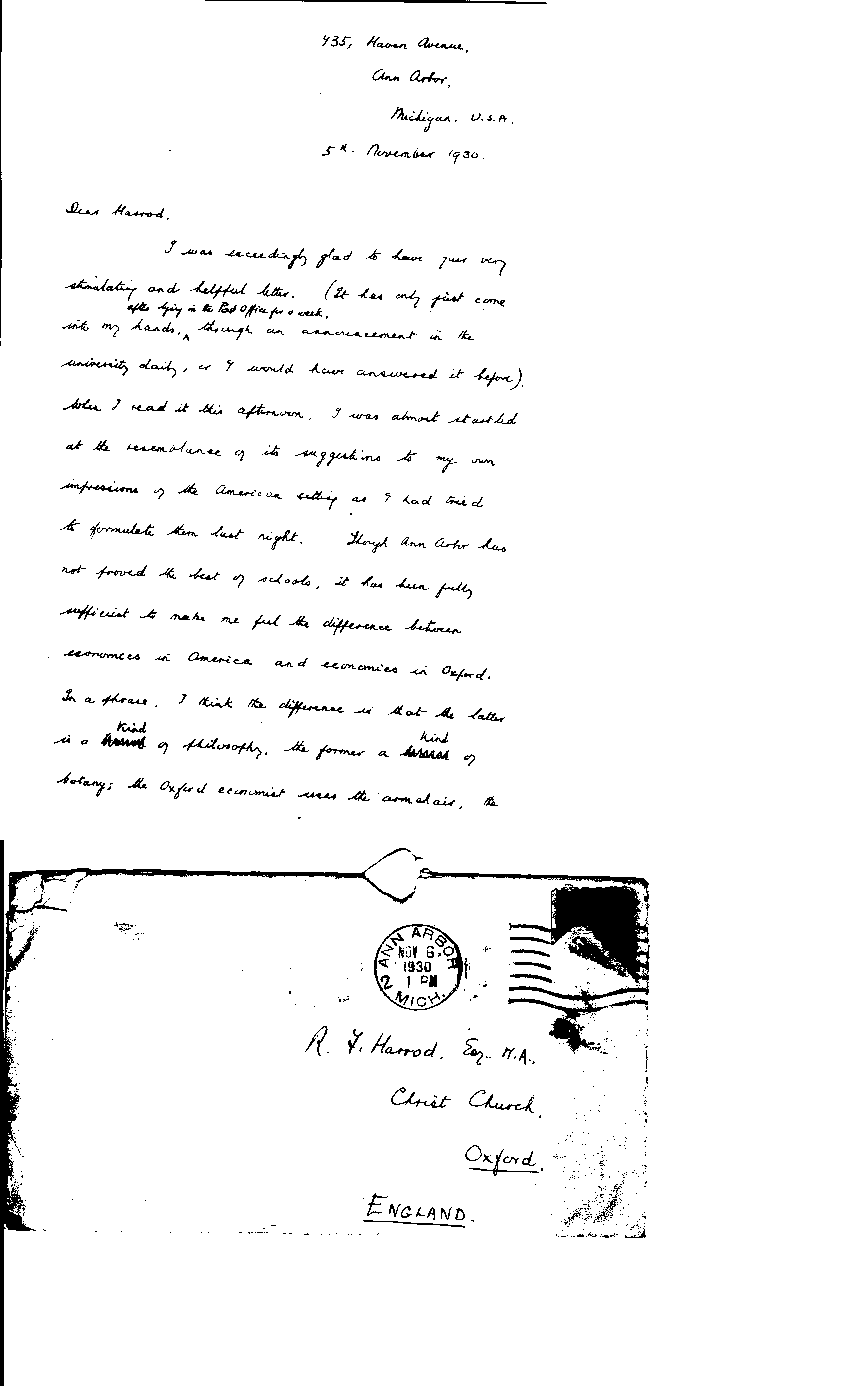 435, Haven Avenue,
Ann Arbor,
Michigan. U.S.A.
5th. November 1930.
Dear Harrod,
I was exceedingly glad to have your very
stimulating and helpful letter. (It has only just come
after lying in the Post Office for a week,
into my hands, through an announcement in the
university daily, or I would have answered it before).
When I read it this afternoon, I was almost startled
at the resemblance of its suggestions to my own
impressions of the American setting as I had tried
to formulate them last night. Though Ann Arbor has
not proved the best of schools, it has been fully
sufficient to make me feel the difference between
economics in America and economics in Oxford.
In a phrase, I think the difference is that the latter
kind kind
is a of philosophy, the former a of
botany; the Oxford economist uses the armchair, the
ANN ARBOR
NOV 6
1930
1 PM
2 MICH.
R. F. Harrod, Esq. M.A.,
Christ Church,
Oxford.
ENGLAND.